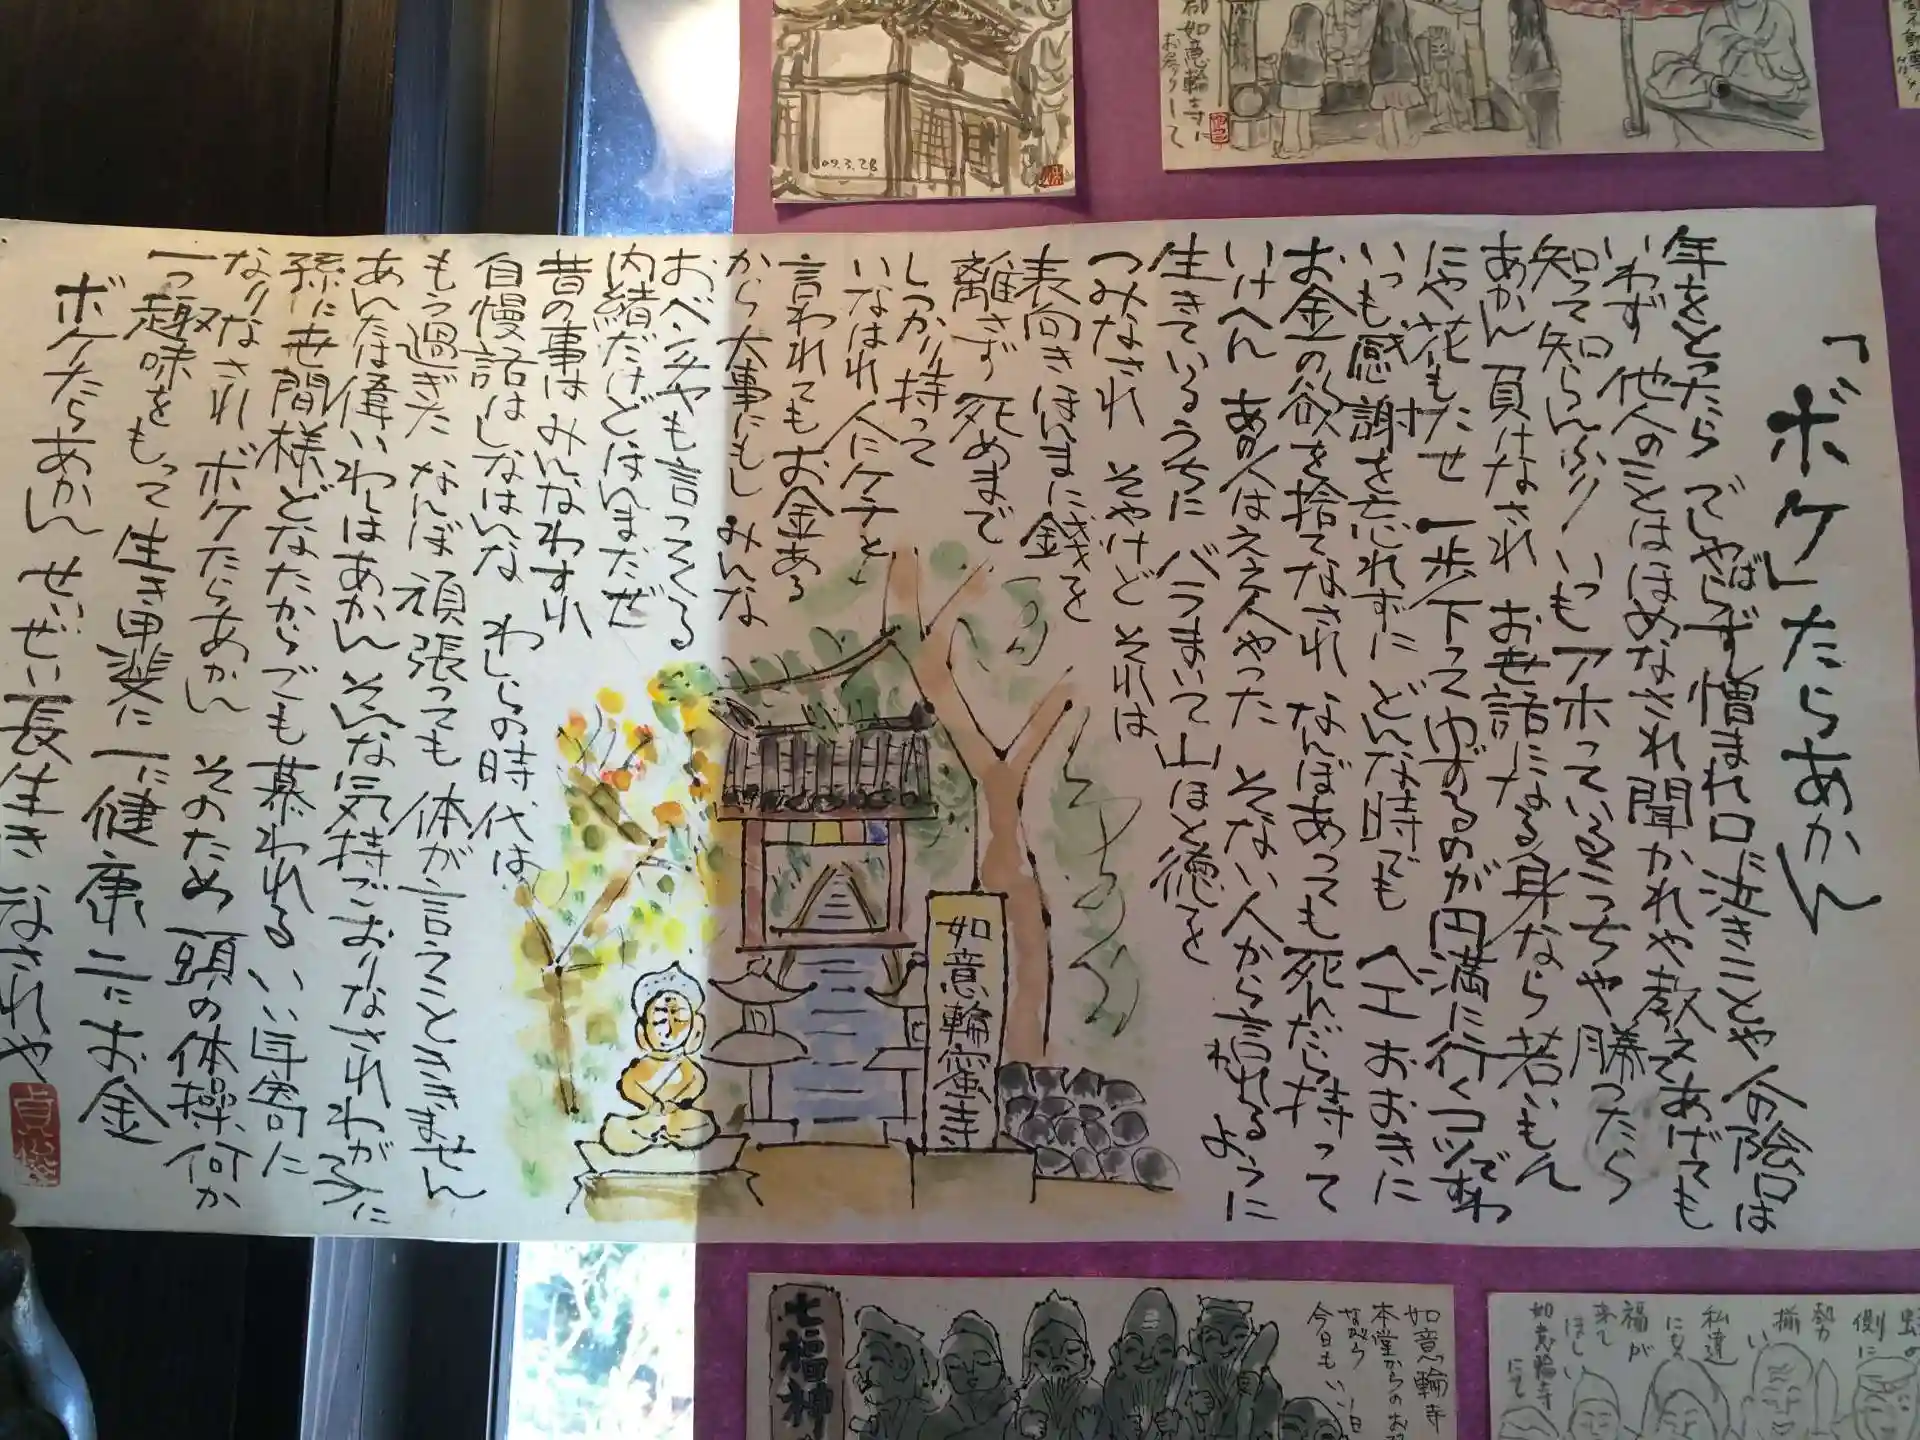 「ボケ」たらあかん
年をとったら でしゃばらず 憎まれ口に泣きごとや 人の陰口は
いわず 他人のことはほめなされ 聞かれや教えてあげても
知って知らんふり いつもアホっているこっちゃ 勝ったら
あかん 負けなされ お世話になる身なら 若いもん
にゃ花もたせ 一歩下ってゆずるのが円満に行くコツですわ
いつも感謝を忘れずに どんな時でも ヘエおおきに
お金の欲を捨てなされ なんぼあっても死んだら持って
いけへん あの人はええ人やった そない人から言われるように
生きているうちに バラまいて山ほど徳を
つみなされ そやけど それは
表向き ほんまに金銭を
離さず 死ぬまで
しっかり持って
いなはれ 人にケチと
言われても お金ある
から大事にもし みんな
おべんちゃらも言ってくる
内緒だけど ほんまだぜ
昔の事は みんなわすれ
自慢話はしなはんな わしらの時代は
もう過ぎた なんぼ頑張っても 体が言うことききません
あんたは偉い わしはあかん そんな気持でおりなされ わが子に
孫に世間様 どなたからでも慕われる いい年寄に
なりなされ ボケたらあかん そのため 頭の体操 何か
一つ趣味をもって 生き甲斐に 一に健康 二にお金
ボケたらあかん せいぜい長生きなされや
如意輪寺
09.3.28
都如意輪寺に
お参りして
七福神
如意輪寺
本堂からのお
ながら
今日もいい日
側に
勢
揃い
私達
にも
福が
来て
ほしい
如意輪寺
にて